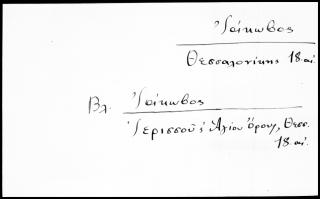 Ἰάκωβος
Θεσσαλονίκης 18 αἰ.
Βλ. Ἰάκωβος
Ἱερισσοῦ & Ἁγίου Ὄρους, Θεσσ.
18 αἰ.